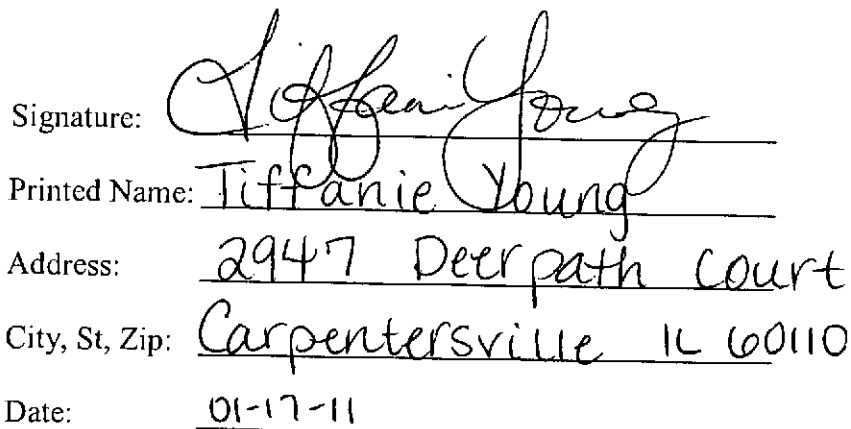 Signature: Tiffanie Young
Printed Name: Tiffanie Young
Address: 2947 Deerpath Court
City, St, Zip: Carpentersville IL 60110
Date: 01-17-11